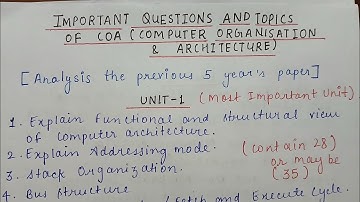 IMPORTANT QUESTIONS AND TOPICS
OF COA (COMPUTER ORGANISATION
& ARCHITECTURE)
[Analysis the previous 5 year's paper]
UNIT-1 (Most Important Unit)
1. Explain Functional and structural view
of Computer architecture.
2. Explain Addressing mode. (contain 28)
3. Stack Organization. or may be
4. Bus Structure (35)
Fetch and Execute Cycle.